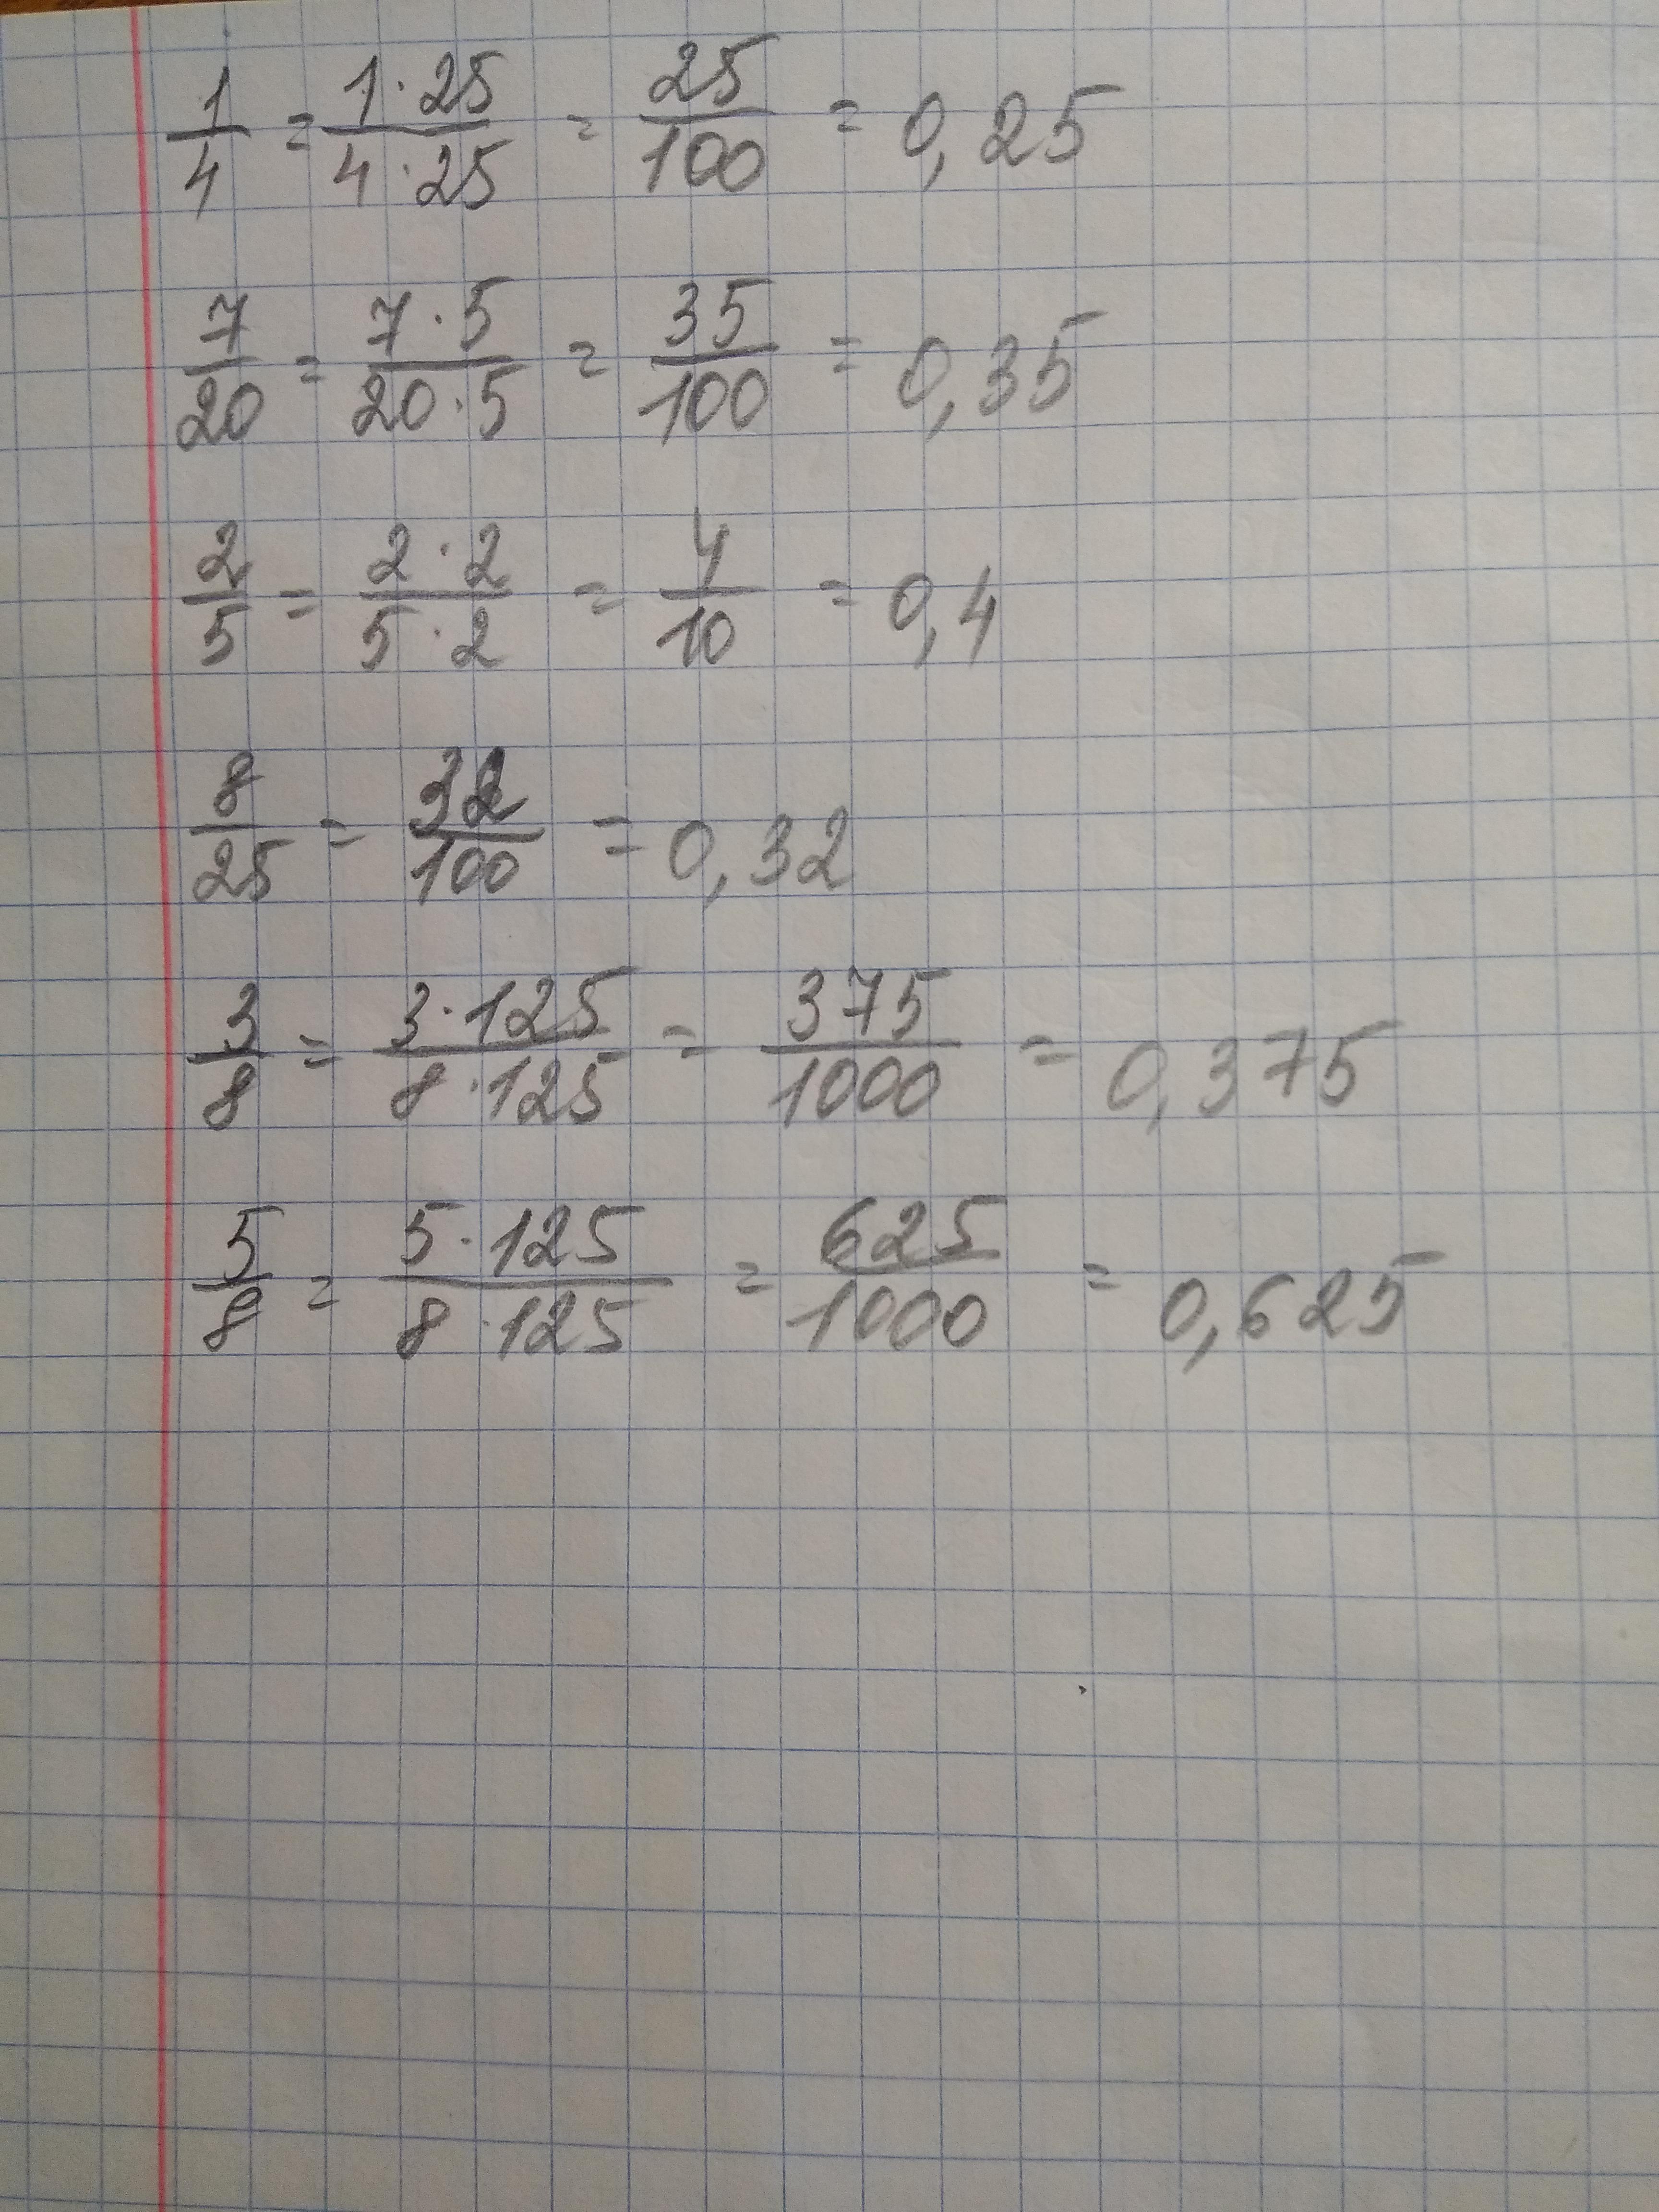 1/4 = 1·25/4·25 = 25/100 = 0,25
7/20 = 7·5/20·5 = 35/100 = 0,35
2/5 = 2·2/5·2 = 4/10 = 0,4
8/25 = 32/100 = 0,32
3/8 = 3·125/8·125 = 375/1000 = 0,375
5/8 = 5·125/8·125 = 625/1000 = 0,625